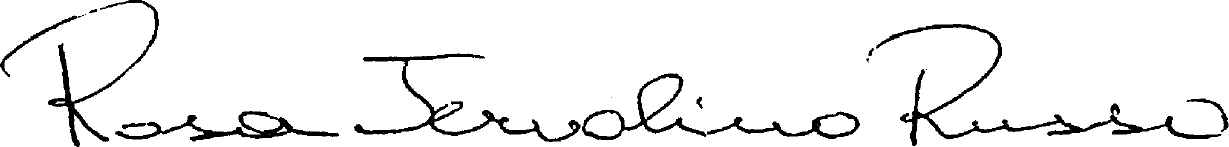 Rosa Jervolino Russo